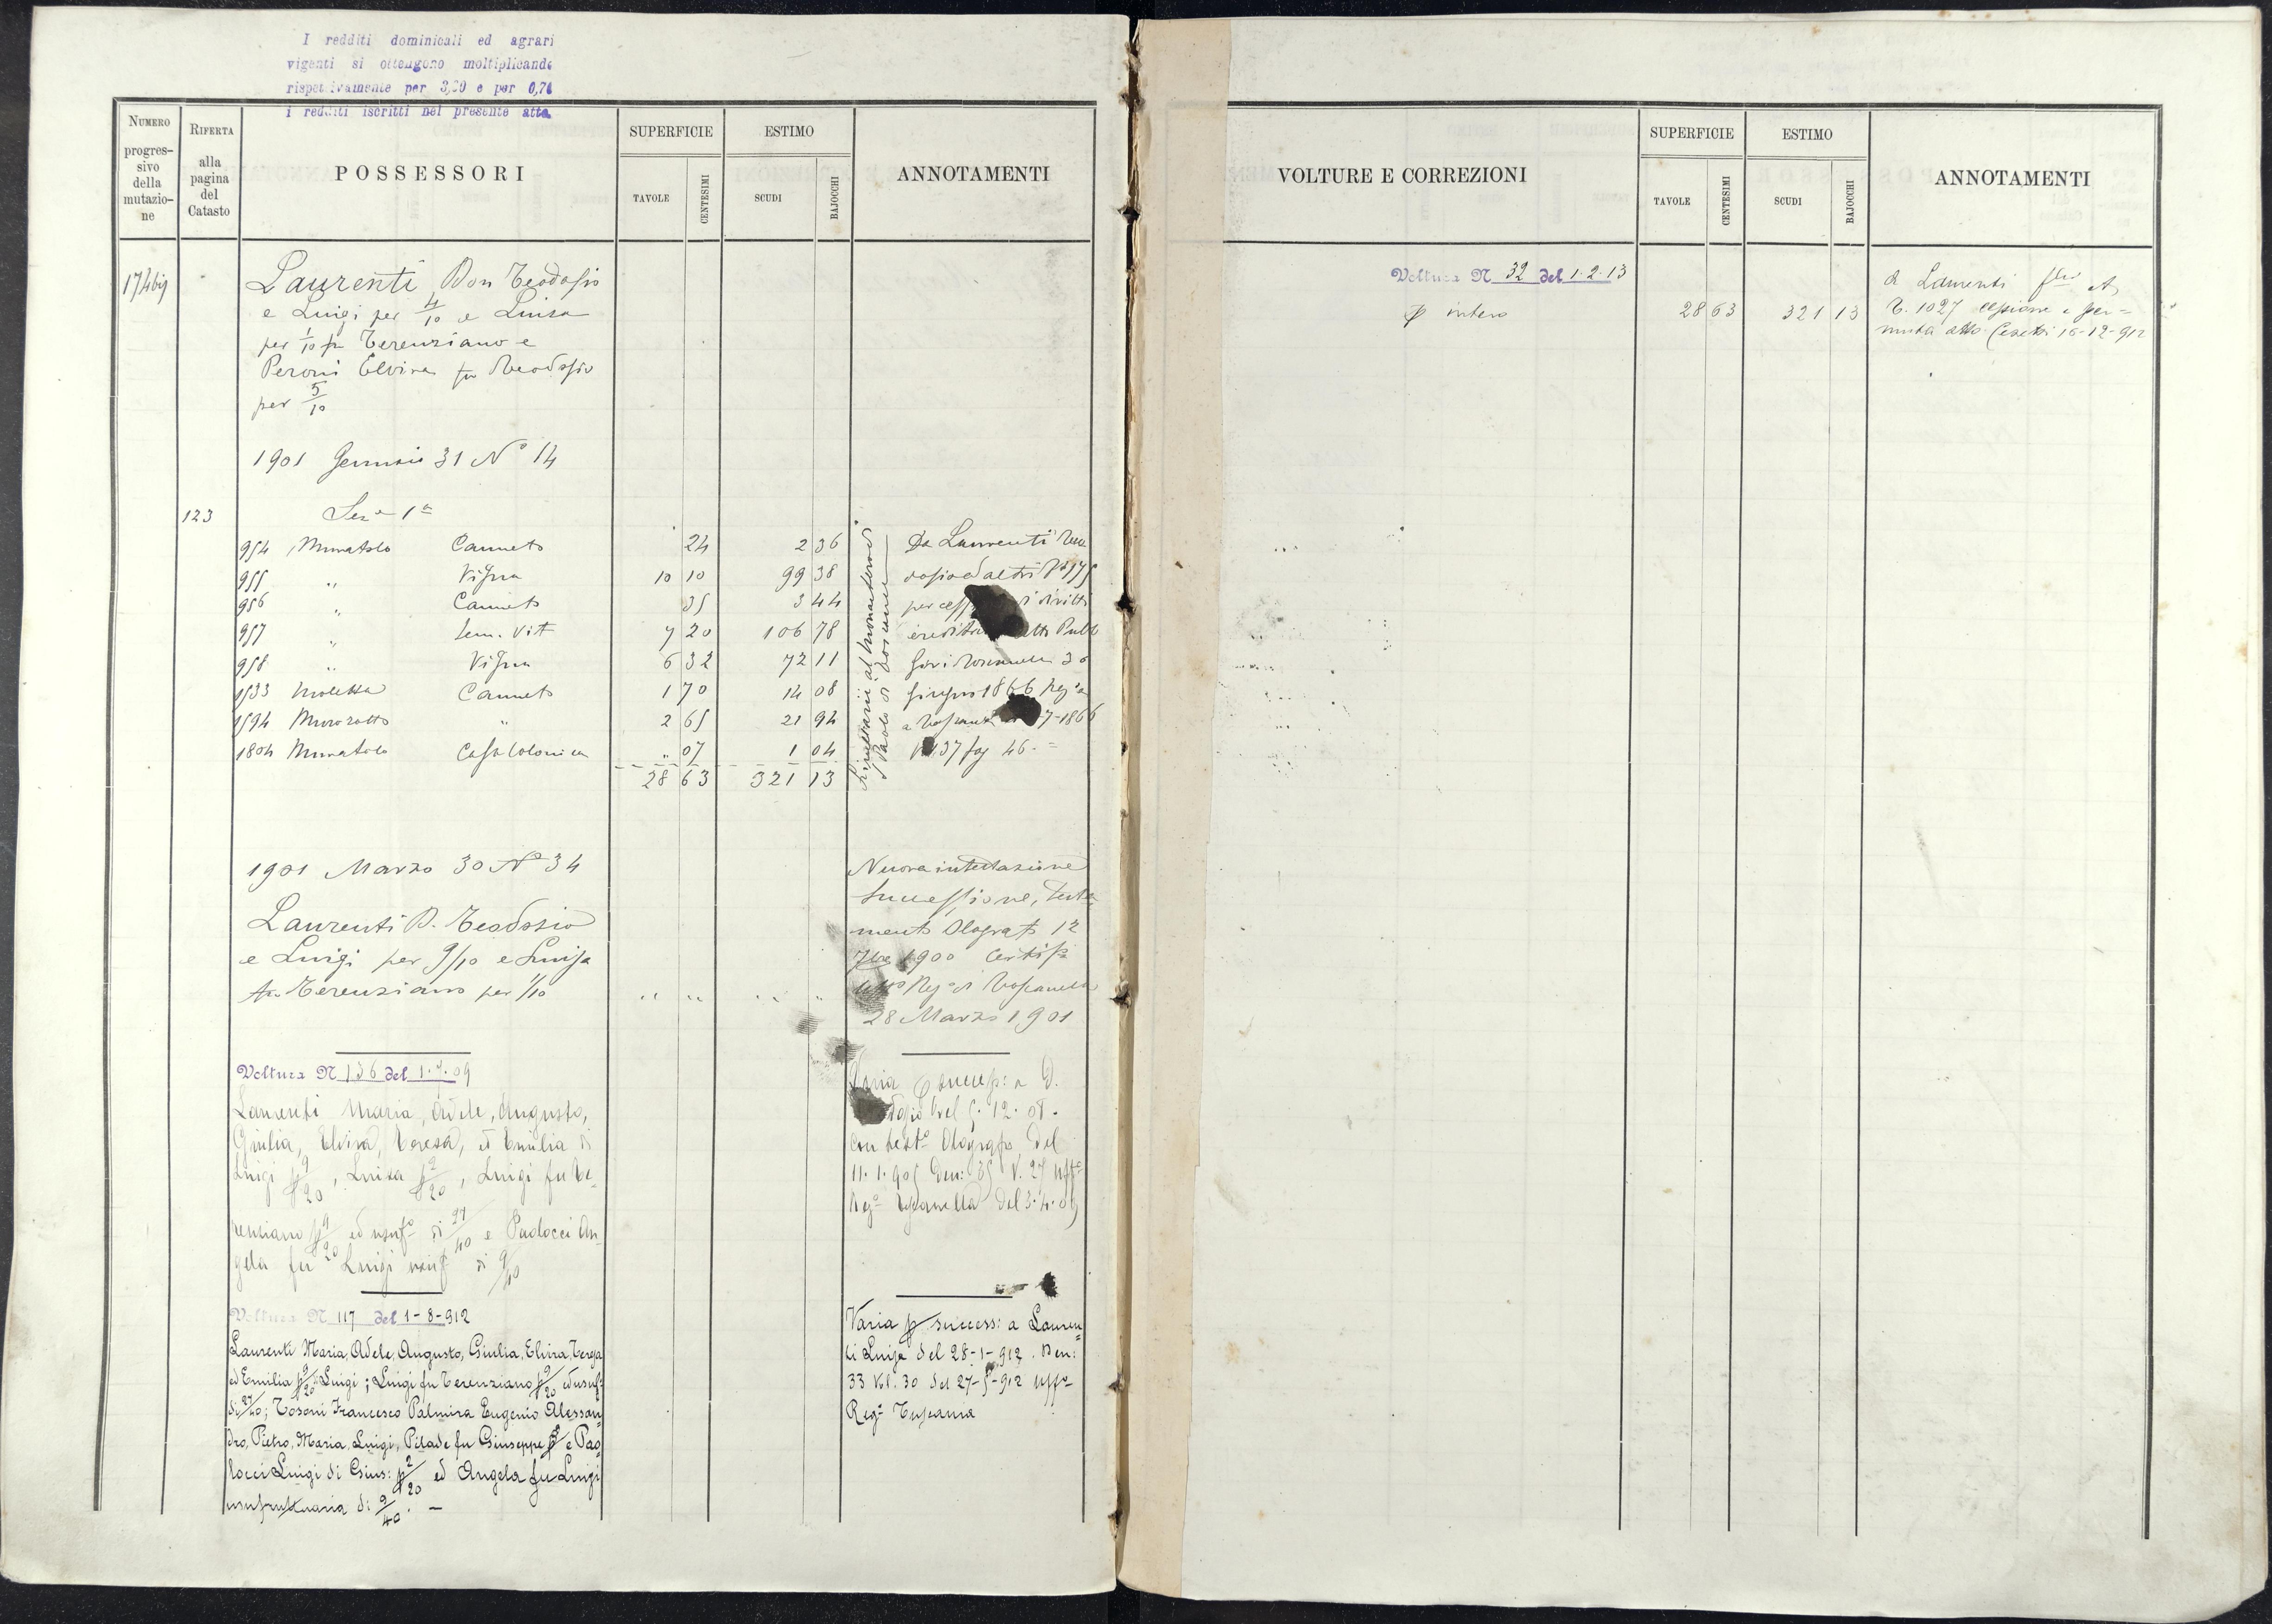 I redditi dominicali ed agrari
vigenti si ottengono moltiplicando
rispettivamente per 3,20 e per 0,70
i redditi iscritti nel presente atto.
NUMERO progres-sivo della mutazio-ne
RIFERTA alla pagina del Catasto
POSSESSORI
SUPERFICIE
TAVOLE CENTESIMI
ESTIMO
SCUDI BAJOCCHI
ANNOTAMENTI
174bis
Laurenti Don Teodosio
e Luigi per 4/10 e Luisa
per 1/10 fu Terenziano e
Peroni Elvira fu Teodosio
per 5/10
1901 Gennaio 31 N° 14
123 Sez.e 1a
954 Muratolo Canneto 24 2 36
955 " Vigna 10 10 99 38
956 " Canneto 35 3 44
957 " Sem. Vit 7 20 106 78
958 " Vigna 6 32 72 11
1533 Moletta Canneto 1 70 14 08
1594 Murorotto " 2 65 21 94
1804 Muratolo Casa Colonica " 07 1 04
28 63 321 13
al Monastero di
S. Paolo di Toscanella
Da Laurenti Teo
dosio ed altri N° 175
per diritti
Pubb
30
giugno 1866 Reg.a
a 7-1866
137 fog 46. =
1901 Marzo 30 N° 34
Laurenti D. Teodosio
e Luigi per 9/10 e Luisa
fu Terenziano per 1/10 " " " "
Nuova intestazione
Successione, testa
mento Olografo 12
7bre 1900 Certif.
Reg.o di Toscanella
28 Marzo 1901
Voltura N 136 del 1.7.09
Laurenti Maria, Adele, Augusto,
Giulia, Elvira, Teresa, ed Emilia di
Luigi p 9/20, Luisa p 2/20, Luigi fu Te-
renziano p 9/20 ed usuf.o di 27/40 e Paolocci An-
gela fu Luigi usuf di 9/40
Varia success: a D.
del 5.12.08.
con test.o Olografo del
11.1.905 Den: 35 V. 27 Uff.o
Reg.o Toscanella del 3.4.09
Voltura N 117 del 1-8-912
Laurenti Maria, Adele, Augusto, Giulia, Elvira, Teresa
ed Emilia p 9/20 Luigi; Luigi fu Terenziano p 9/20 ed usuf:
di 27/40; Tosoni Francesco Palmira Eugenio Alessan
dro, Pietro, Maria, Luigi, Pilade fu Giuseppe e Pao
locci Luigi di Gius: p 2/20 ed Angela fu Luigi
usufruttuaria di 9/40. —
Varia p success: a Lauren
ti Luisa del 28-1-912. Den:
33 Vol. 30 del 27-5-912 Uff.o
Reg.o Tuscania
VOLTURE E CORREZIONI
SUPERFICIE
TAVOLE CENTESIMI
ESTIMO
SCUDI BAJOCCHI
ANNOTAMENTI
Voltura N 32 del 1.2.13
p intero 28 63 321 13
a Laurenti
1027 cessione e per=
muta atto 16-12-912